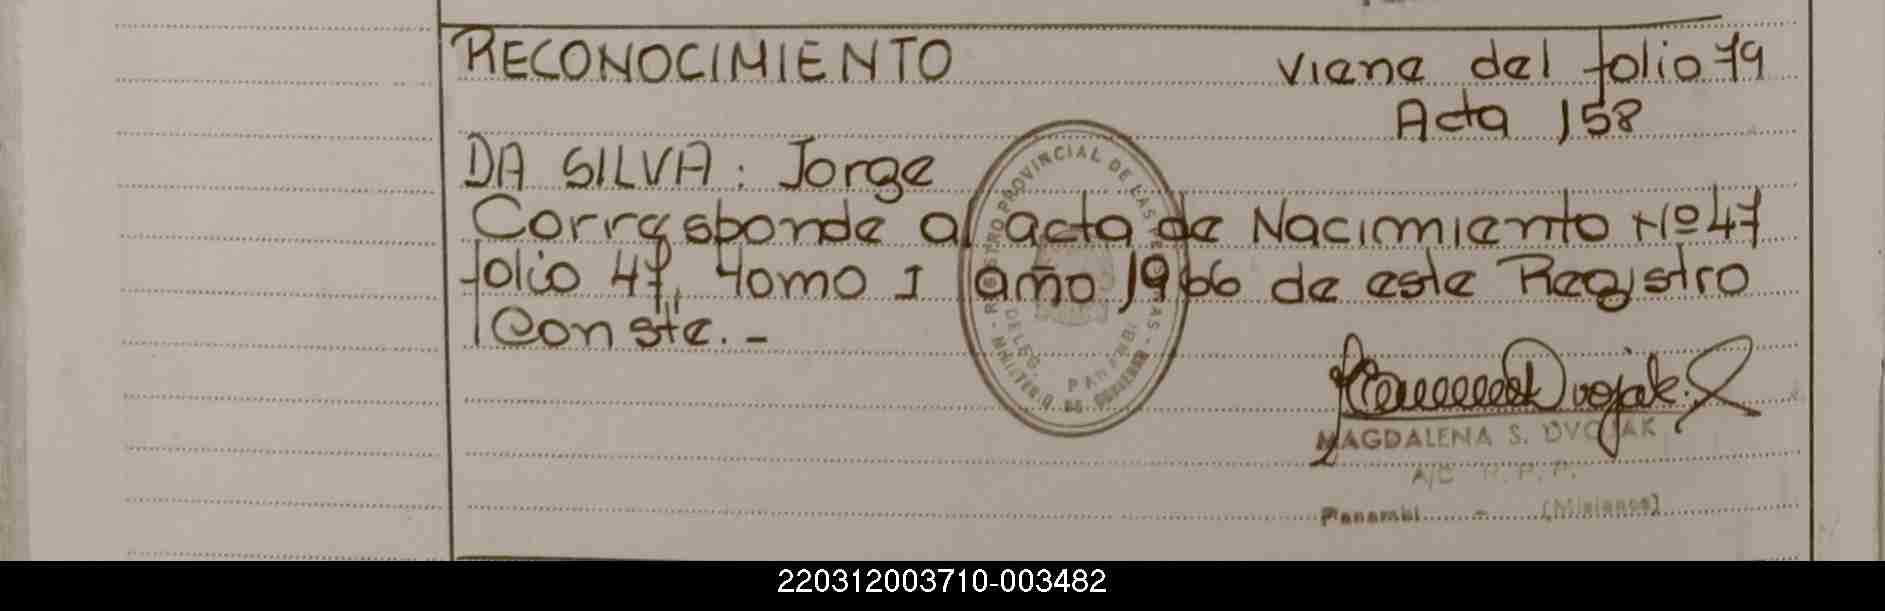 RECONOCIMIENTO
Viene del folio 79
Acta 158
DA SILVA: Jorge
Corresponde al acta de Nacimiento Nº 47
folio 47, tomo I año 1966 de este Registro
Conste.-
REGISTRO PROVINCIAL DE LAS PERSONAS - MINISTERIO DE GOBIERNO -
DELEG. PANAMBI
Dvojak
MAGDALENA S. DVOJAK
A/C R. P. P.
Panambi - (Misiones)
220312003710-003482